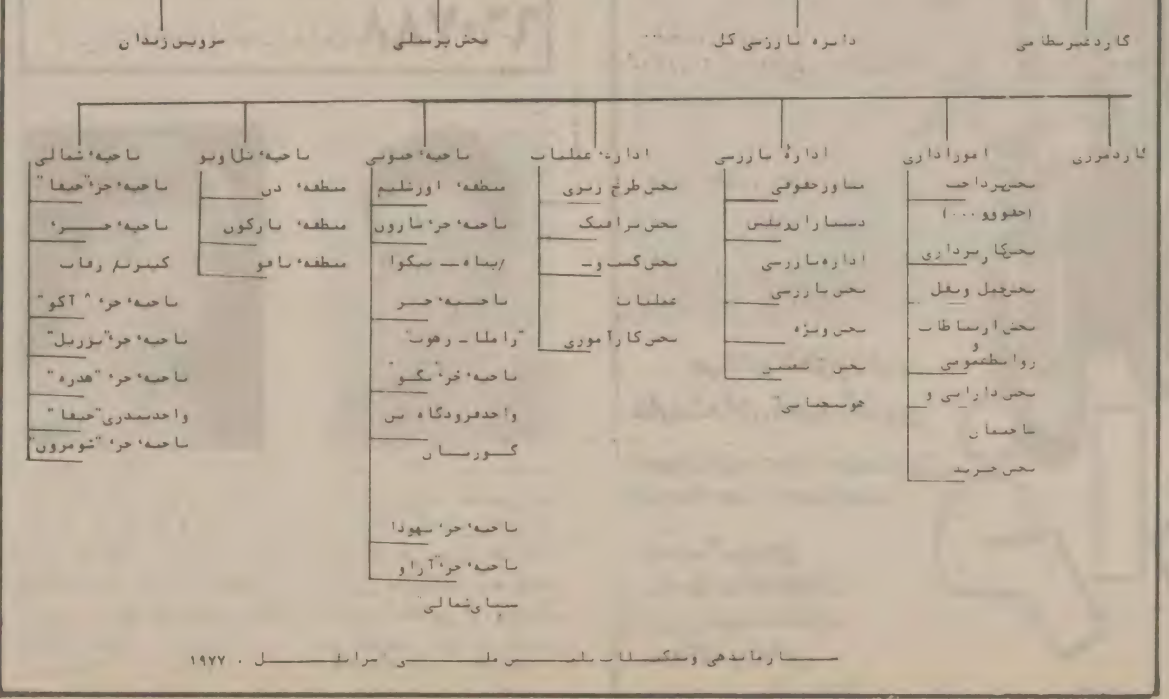 گارد غیرنظامی
دایره بازرسی کل
بخش پرسنلی
سرویس زندان
گارد مرزی
امور اداری
بخش پرداخت
(حقوق و ...)
بخش کارپردازی
بخش حمل و نقل
بخش ارتباطات
و
روابط عمومی
بخش دارایی و
ساختمان
بخش خرید
ادارهٔ بازرسی
مشاور حقوقی
دستیار پلیس
اداره بازرسی
بخش بازرسی
بخش ویژه
بخش "تعیین
هویت جنایی"
اداره عملیات
بخش طرح ریزی
بخش ترافیک
بخش گشت و ـ
عملیات
بخش کارآموزی
ناحیهٔ جنوبی
منطقهٔ اورشلیم
ناحیهٔ جزء شارون
/پتاه ـ تیکوا
ناحیهٔ جزء
"راملا ـ رهوت"
ناحیهٔ جزء "نگو"
واحد فرودگاه بن
گوریان
ناحیهٔ جزء یهودا
ناحیهٔ جزء "آراو
سینای شمالی"
ناحیهٔ تل اویو
منطقهٔ دن
منطقهٔ یارکون
منطقهٔ یافو
ناحیهٔ شمالی
ناحیهٔ جزء "حیفا"
ناحیهٔ جزء
ناحیهٔ جزء "آکو"
ناحیهٔ جزء "یزریل"
ناحیهٔ جزء "هدره"
واحد بندری "حیفا"
ناحیهٔ جزء "شومرون"
سازماندهی و تشکیلات پلیس ملی اسرائیل . ۱۹۷۷